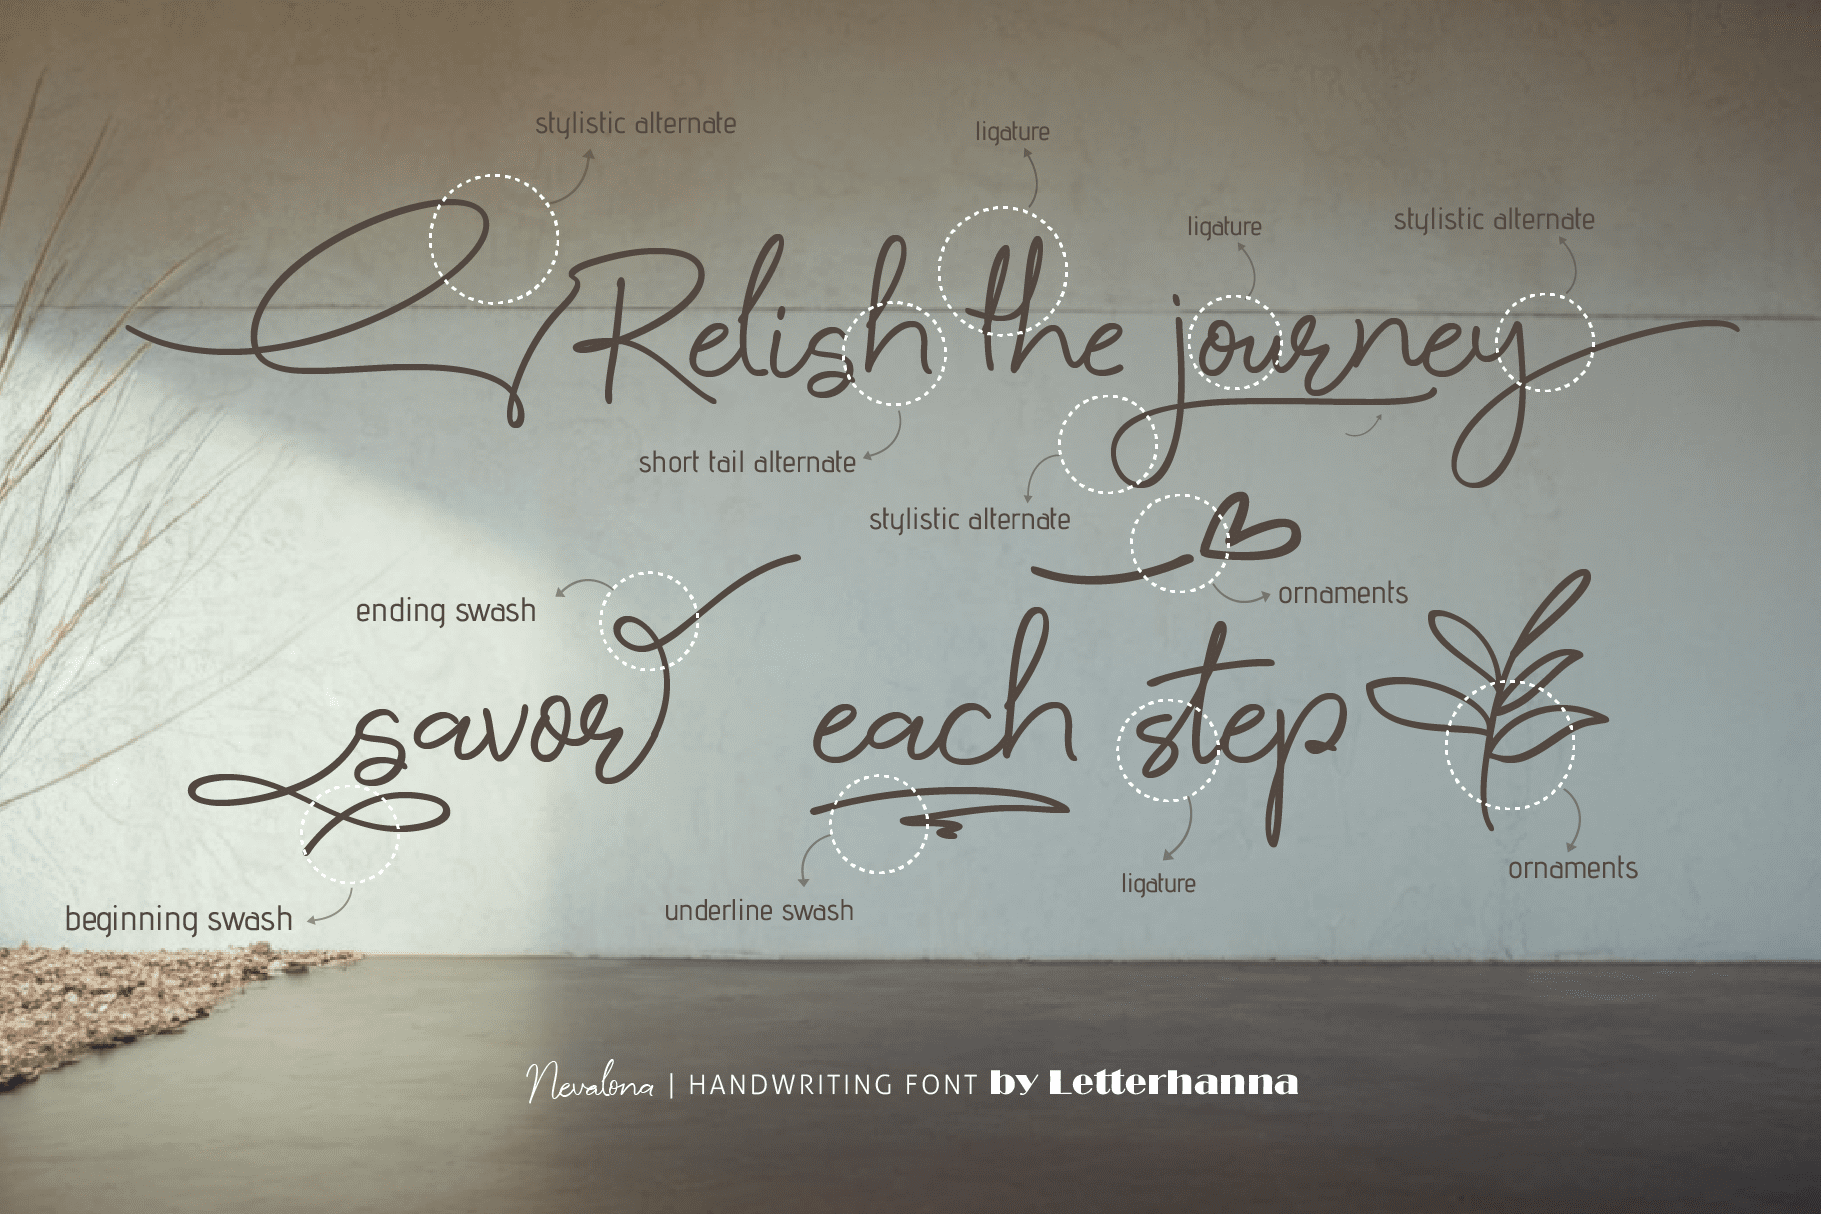 stylistic alternate
ligature
ligature
stylistic alternate
Relish the journey
short tail alternate
stylistic alternate
ornaments
ending swash
savor each step
ligature
ornaments
underline swash
beginning swash
Nevalona | HANDWRITING FONT by Letterhanna